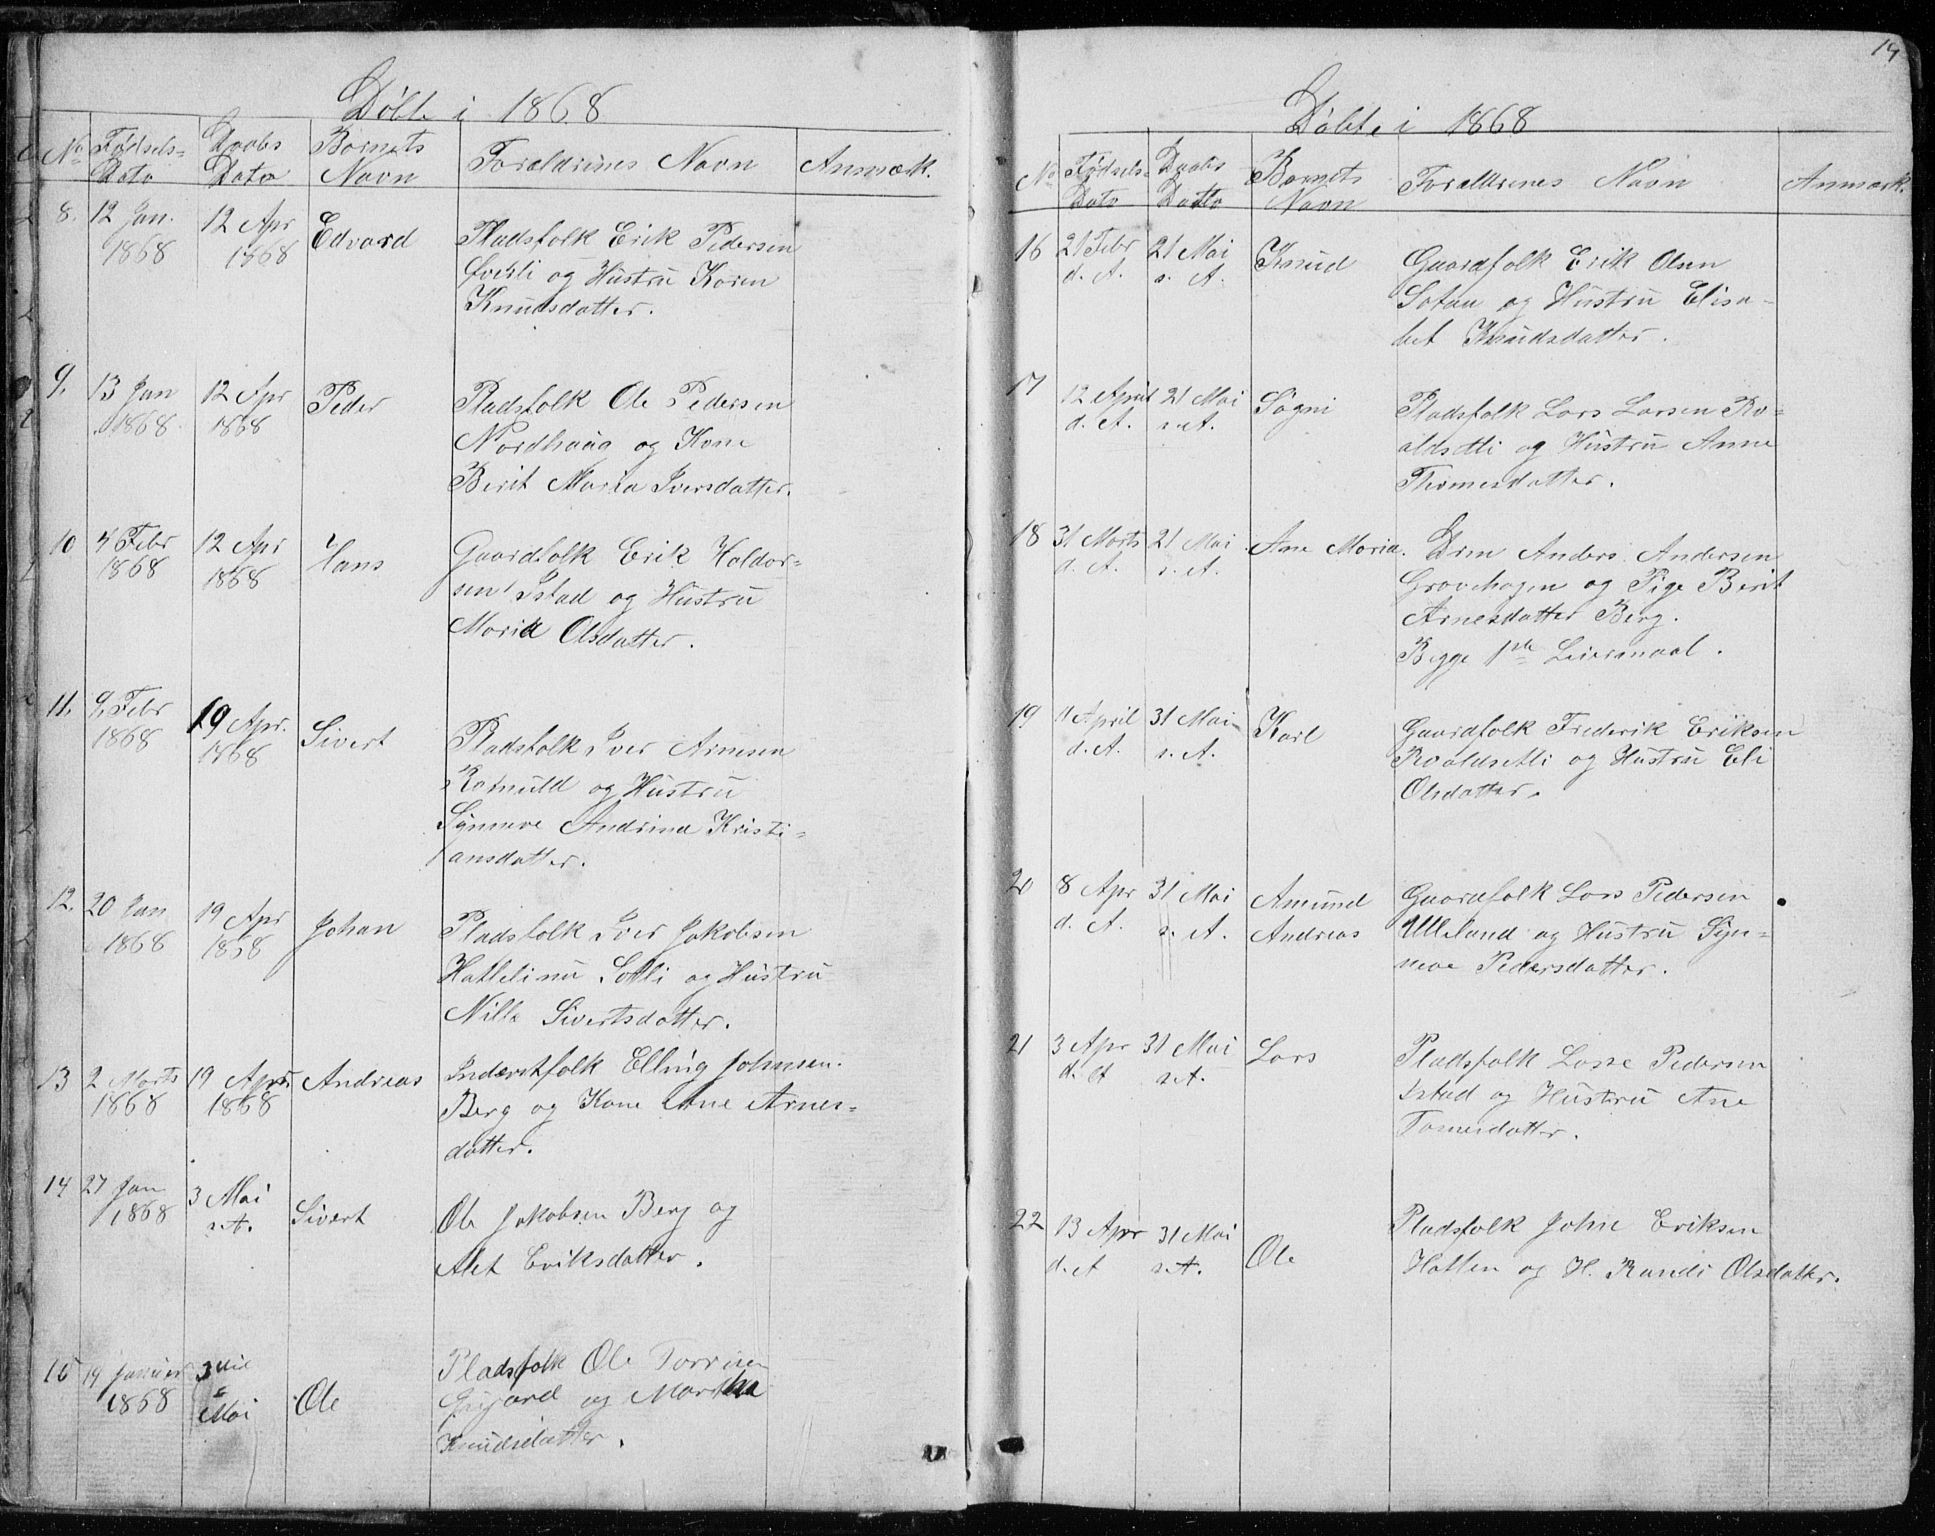 Døbte i 1868
No Fødsels- Dato Daabs Dato Barnets Navn Forældrenes Navn Anmærk.
8. 12 Jan. 1868 12 Apr 1868 Edvard Pladsfolk Erik Pedersen
og Hustru Karen
Knudsdatter.
9. 13 Jan 1868 12 Apr 1868 Peder Pladsfolk Ole Pedersen
Nordhaug og Kone
Berit Maria Iversdatter.
10 4 Febr 1868 12 Apr 1868 Hans Gaardfolk Erik Haldor-
sen Istad og Hustru
Maria Olsdatter.
11. 9 Febr 1868 19 Apr. 1868 Sivert Pladsfolk Iver Arnesen
og Hustru
Synneve Andrina Kristi-
ansdatter.
12. 20 Jan 1868 19 Apr 1868 Johan Pladsfolk Iver Jakobsen
og Hustru
Nille Sivertsdatter.
13 2 Marts 1868 19 April 1868 Andreas Inderstfolk Elling Johnsen
Berg og Kone Ane Arnes-
datter.
14 27 Jan 1868 3 Mai s. A. Sivert Ole Jakobsen Berg og
Alet Eriksdatter.
15 19 Januar 1868 3 Mai Ole Pladsfolk Ole
og Martha
Knudsdatter.
19
Døbte i 1868
No Fødsels- Dato Daabs Datto Barnets Navn Forældrenes Navn Anmærk.
16 21 Febr d. A. 21 Mai s. A. Knud Gaardfolk Erik Olsen
og Hustru Elisa-
bet Knudsdatter.
17 12 April d. A. 21 Mai s. A. Søgni Pladsfolk Lars Larsen Ro-
aldsetli og Hustru Anne
Thomesdatter.
18 31 Marts d. A. 21 Mai s. A. Ane Maria. Drm Anders Andersen
og Pige Berit
Arnesdatter Berg.
Begge 1ste Leiermaal.
19 11 April d. A. 31 Mai s. A. Karl Gaardfolk Frederik Eriksen
Roaldsetli og Hustru Eli
Olsdatter.
20 8 Apr d. A. 31 Mai s. A. Amund Andreas Gaardfolk Lars Pedersen
Ulleland og Hustru Syn-
neve Pedersdatter.
21 3 Apr d. A 31 Mai s. A. Lars Pladsfolk Lasse Pedersen
Istad og Hustru Ane
Tomesdatter.
22 13 Apr d. A 31 Mai s. A. Ole Pladsfolk John Eriksen
Hatlen og H. Randi Olsdatter.